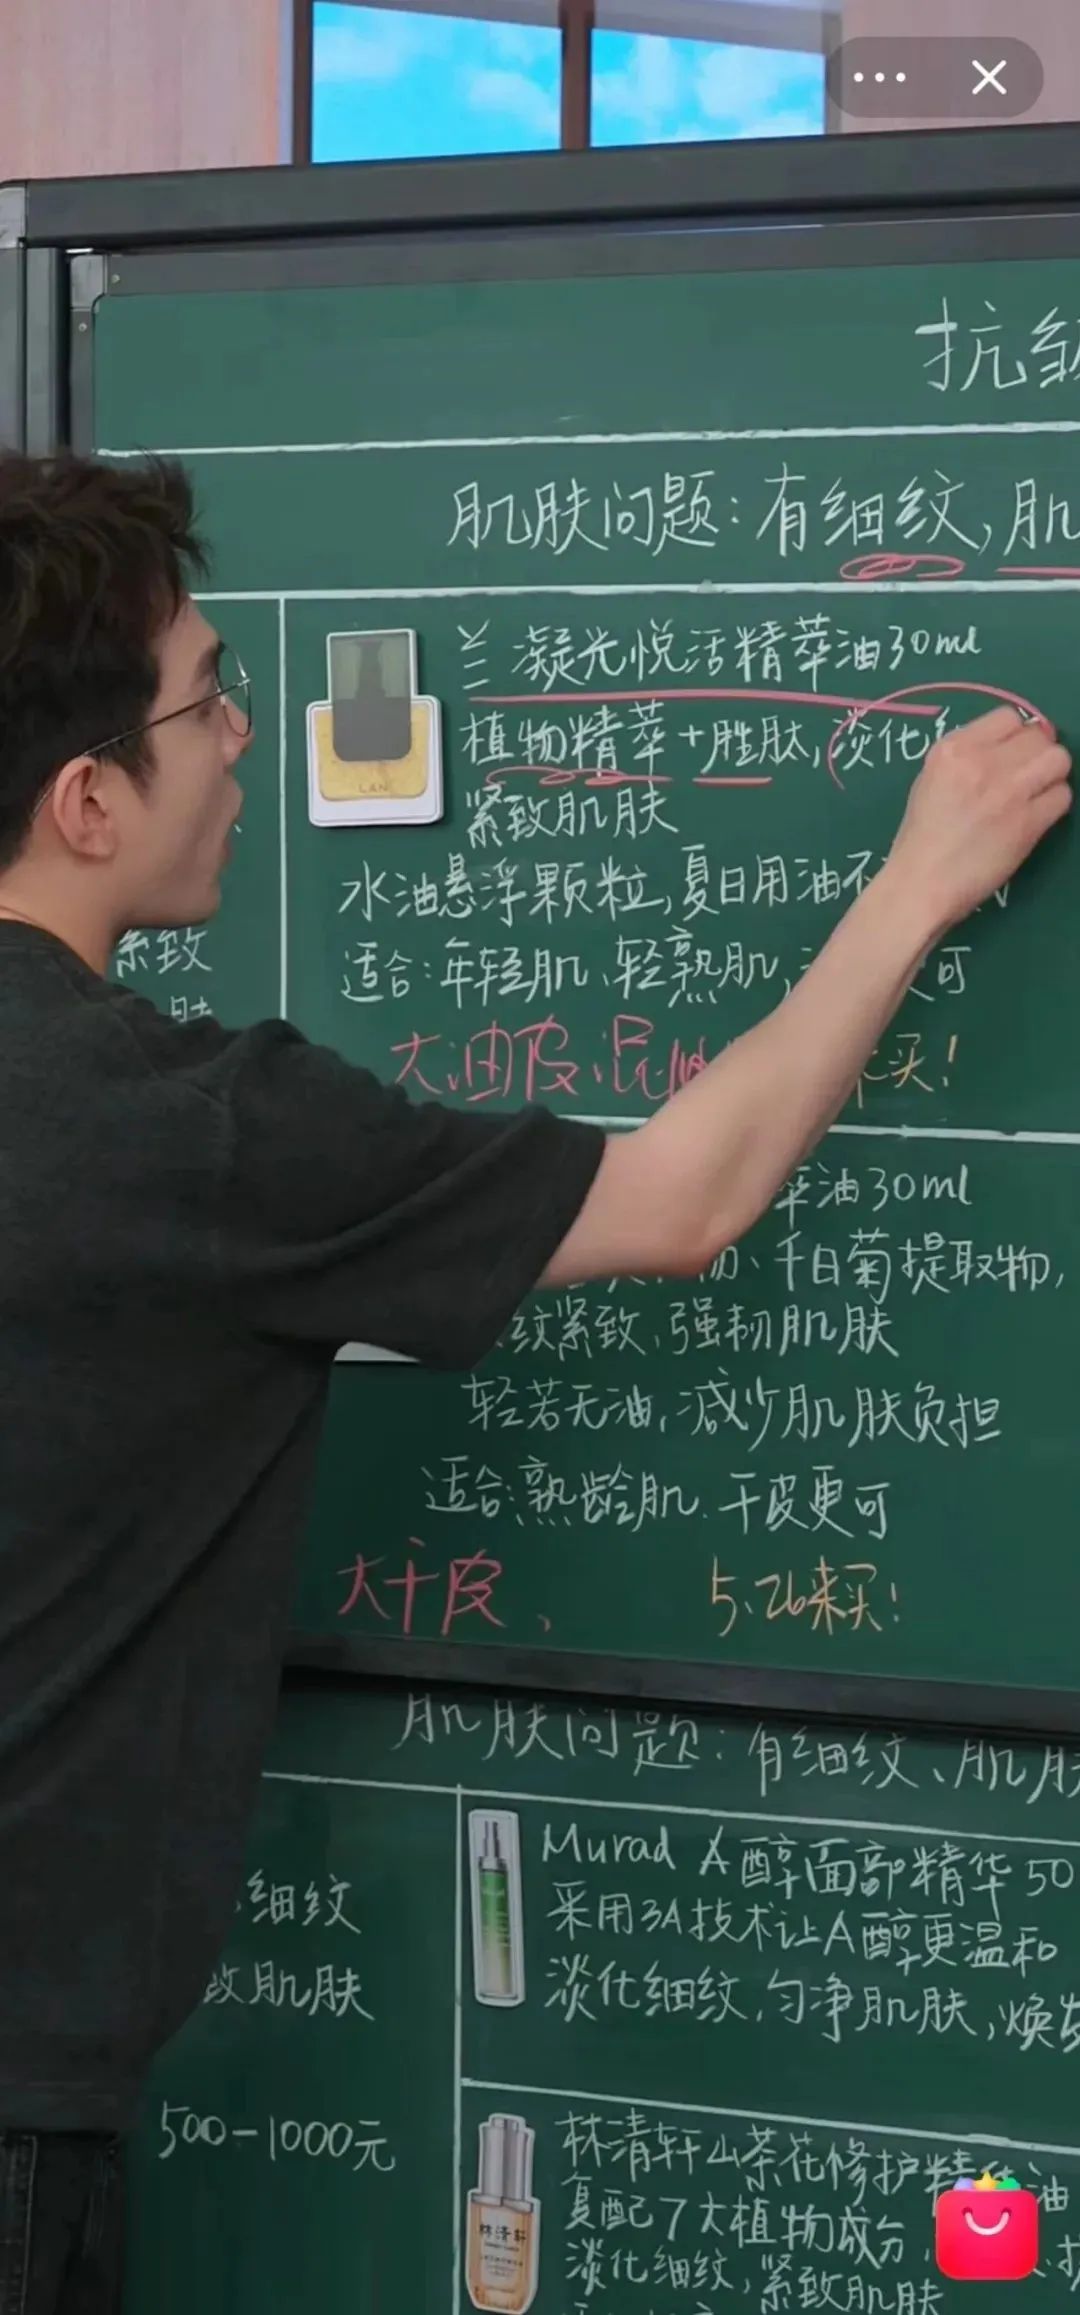 抗皱
肌肤问题：有细纹，肌
兰 凝光悦活精萃油30ml
植物精萃+胜肽，淡化
紧致肌肤
LAN
水油悬浮颗粒，夏日用油不
适合：年轻肌、轻熟肌，
可
大油皮、混油
来买！
紧致
肤
萃油30ml
物、千日菊提取物，
纹紧致，强韧肌肤
轻若无油，减少肌肤负担
适合：熟龄肌．干皮更可
大干皮、
5.26来买！
肌肤问题：有细纹、肌肤
细纹
致肌肤
500-1000元
Murad A醇面部精华50
采用3A技术让A醇更温和
淡化细纹，匀净肌肤，焕发
林清轩山茶花修护精华油
复配7大植物成分，
淡化细纹，紧致肌肤
林清轩